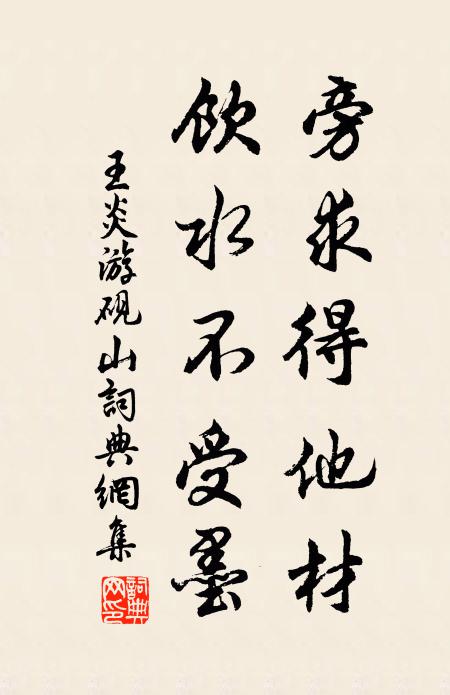 旁求得他材
飲水不受墨
王炎游硯山詞典網集
詞典網印